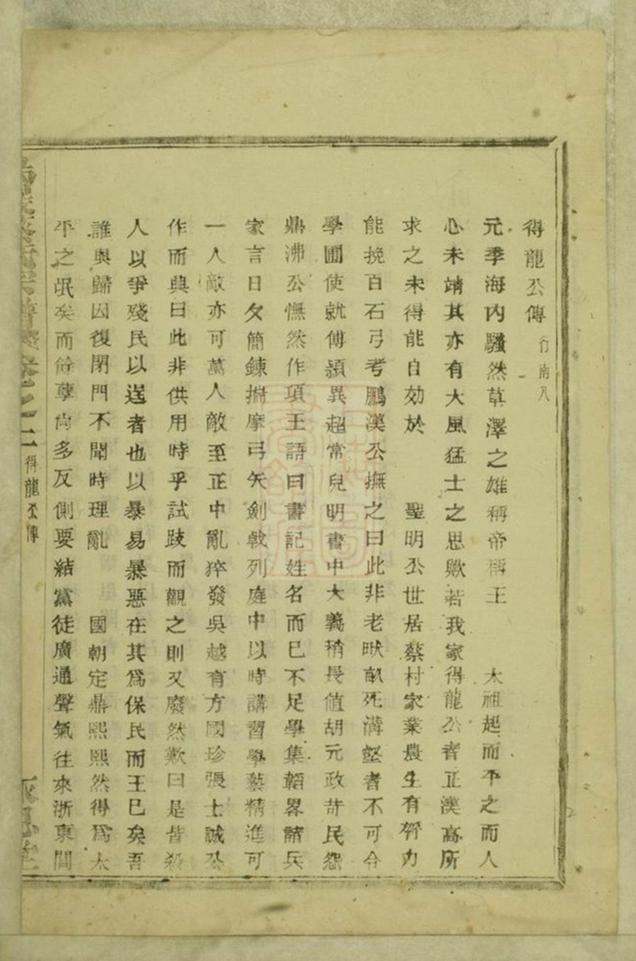 得龍公傳 行南八
元季海內騷然草澤之雄稱帝稱王 太祖起而平之而人
心未靖其亦有大風猛士之思歟若我家得龍公者正漢高所
求之未得能自効於 聖明公世居蔡村家業農生有膂力
能挽百石弓考鵬漢公撫之曰此非老畎畝死溝壑者不可令
學圃使就傅穎異超常兒明書中大義稍長值胡元政苛民怨
鼎沸公慨然作項王語曰書記姓名而已不足學集韜畧諸兵
家言日夕簡鍊揣摩弓矢劍戟列庭中以時講習學藝精進可
一人敵亦可萬人敵至正中亂猝發吳越有方國珍張士誠公
作而興曰此非供用時乎試跂而觀之則又廢然歎曰是皆殺
人以爭殘民以逞者也以暴易暴惡在其為保民而王已矣吾
誰與歸因復閉門不聞時理亂 國朝定鼎熙熙然得為太
平之氓矣而餘孽尚多反側要結黨徒廣通聲氣往來浙東間
卷之二 得龍公傳